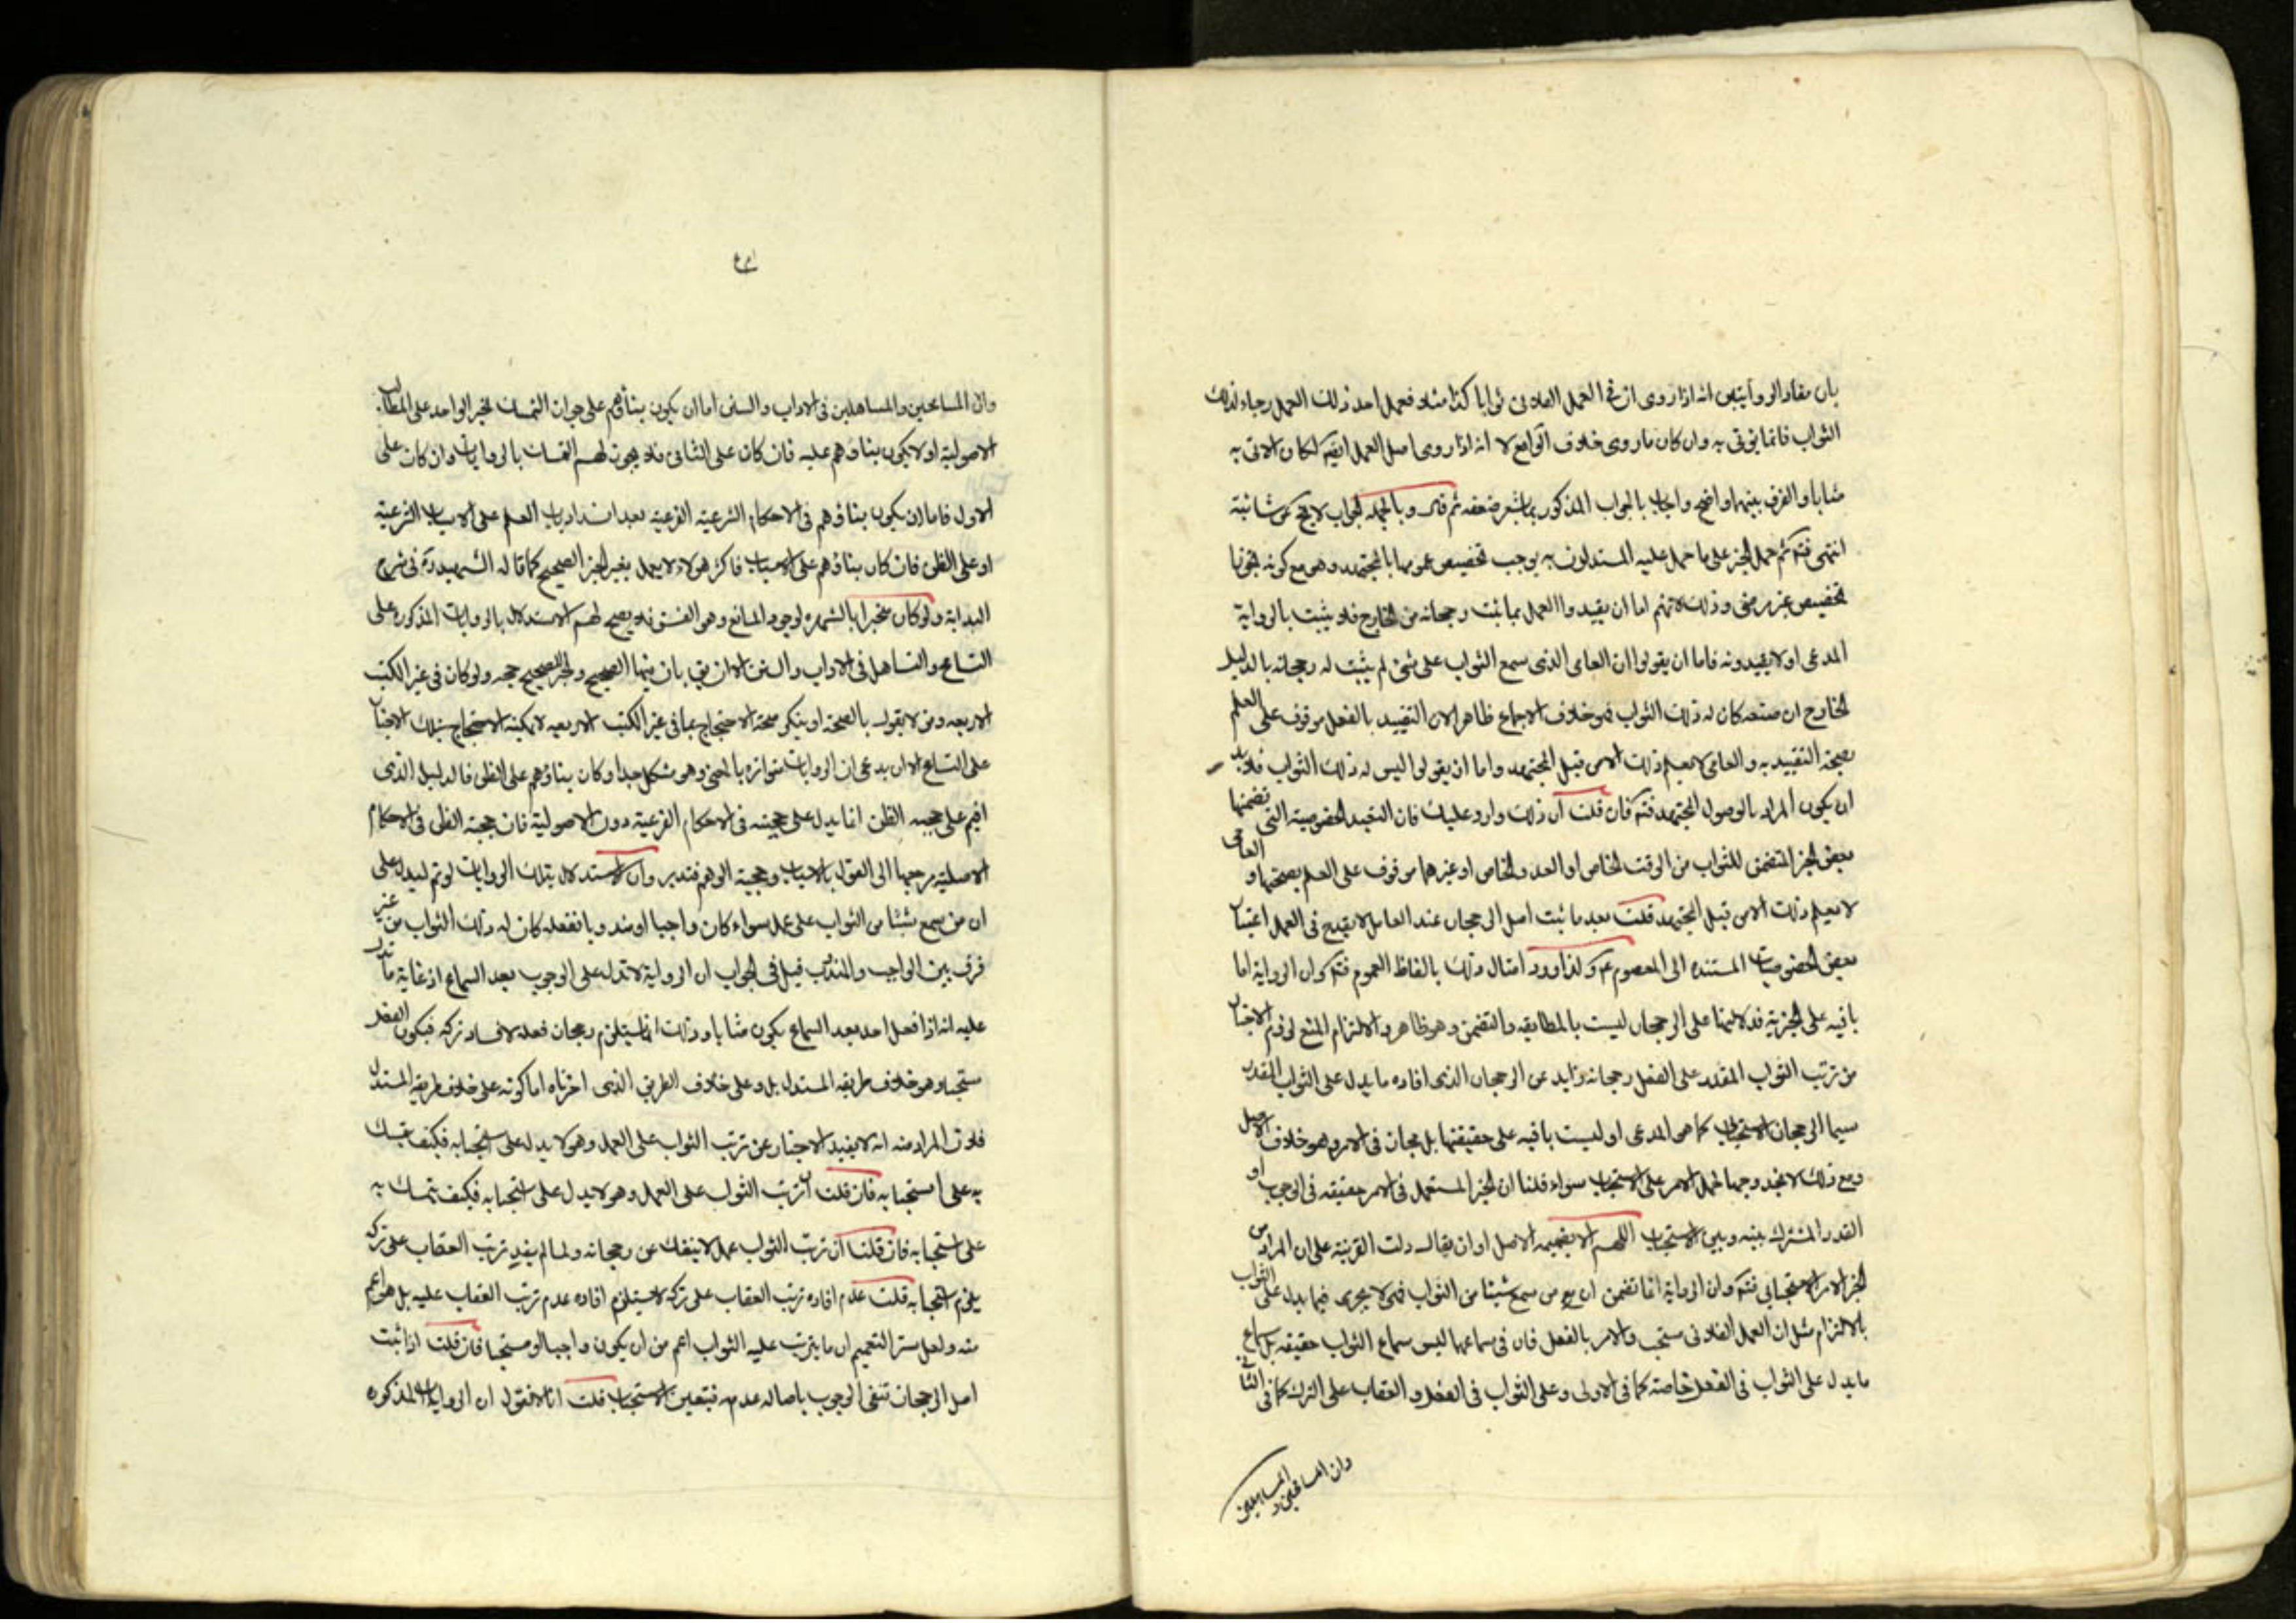 بان مفاد الروايتين انه اذا روى ان في العمل الفلاني ثوابا كذا مثلا فعمل احد ذلك العمل رجاء لذلك
الثواب فانما يؤتى به وان كان ما روى خلاف الواقع لا انه اذا روى اصل العمل ايضا لكان الاتى به
مثابا والفرق بينهما واضح واجاب بالجواب المذكور بما يشعر ضعفه ثم قال وبالجملة الجواب لا يخ عن شائبة
انتهى فتم ثم حمل الخبر على ما حمل عليه المستدلون به يوجب تخصيص عمومها بالمجتهد وهو مع كونه
تخصيص غير مرضى وذلك لانهم اما ان يقيدوا العمل بما ثبت رجحانه من الخارج فلا يثبت بالرواية
المدعى او لا يقيدونه فاما ان يقولوا ان العامى الذى سمع الثواب على شئ لم يثبت له رجحانه بالدليل
الخارج ان صنعه كان له ذلك الثواب فهو خلاف الاجماع ظاهرا لان التقييد بالفعل موقوف على العلم
بصحة التقييد به والعامى لا يعلم ذلك الا من قبل المجتهد واما ان يقولوا ليس له ذلك الثواب فلا بد
ان يكون المراد بالوصول المجتهد فتم فان قلت ان ذلك وارد عليك فان التقييد الخصوصية التى تضمنها
بعض الخبر المتضمن للثواب من الوقت الخاص او العدد الخاص او غيرهما موقوف على العلم بصحتها و العامى
لا يعلم ذلك الا من قبل المجتهد قلت بعد ما ثبت اصل الرجحان عند العامل لا يقدح فى العمل اعتبار
بعض الخصوصيات المستنده الى المعصوم ع ولذا ورد امثال ذلك بالفاظ العموم فتم وان الرواية اما
باقيه على الخبرية فدلالتها على الرجحان ليست بالمطابقه والتضمن وهو ظاهر ولا الالتزام لمنع لزوم الاخبار
من ترتب الثواب المقدر على الفعل رجحانه زايد عن الرجحان الذى افاده ما يدل على الثواب المقدر
سيما الرجحان الاستحبابى كما هو المدعى او ليست باقيه على حقيقتها بل مجاز فى الامر وهو خلاف الاصل
ومع ذلك لا نجد وجها لحمل الامر على الاستحباب سواء قلنا ان الخبر المستعمل فى الامر حقيقه فى الوجوب او
القدر المشترك بينه وبين الاستحباب اللهم الا بضميمه الاصل او ان يقال دلت القرينة على ان المراد من
الخبر الامر الاستحبابى فتم وان الرواية انما تضمن ان من سمع شيئا من الثواب فهى لا يجرى فيما يدل على الثواب
بالالتزام مثل ان العمل الفلانى مستحب والامر بالفعل فان فى سماعها ليس سماع الثواب حقيقه بل سماع
ما يدل على الثواب فى الفعل خاصة كما فى الاولى وعلى الثواب فى الفعل والعقاب على الترك كما فى الثانى
وان المسامحين و
المساهلين
وان المسامحين والمساهلين فى الاداب والسنن اما ان يكون بناؤهم على جواز التمسك بخبر الواحد على المطالب
الاصولية او لا يكون بناؤهم عليه فان كان على الثانى فلا يجوز لهم التمسك بالروايات وان كان على
الاول فاما ان يكون بناؤهم فى الاحكام الشرعية الفرعيه بعد انسداد باب العلم على الاسباب الشرعية
او على الظن فان كان بناؤهم على الاسباب فاكثر هؤلاء لا يعمل بغير الخبر الصحيح كما قاله الشهيد ره فى شرح
البداية ولو كان منجبرا بالشهره لوجود المانع وهو الفسق فلا يصح لهم الاستدلال بالروايات المذكوره على
التسامح والتساهل فى الاداب والسنن الا ان يق بان منها الصحيح والخبر الصحيح حجه ولو كان فى غير الكتب
الاربعه ومن لا يقول بالصحة او ينكر صحة الاحتجاج بما فى غير الكتب الاربعه لا يمكنه الاحتجاج بتلك الاخبار
على التسامح الا ان يدعى ان الروايات متواتره بالمعنى وهو مشكل جدا وكان بناؤهم على الظن فالدليل الذى
اقيم على حجيه الظن انما يدل على حجيته فى الاحكام الفرعية دون الاصولية فان حجية الظن فى الاحكام
الاصلية مرجعها الى القول بالاسباب وحجية الوهم فتدبر وان الاستدلال بتلك الروايات لو تم ليدل على
ان من سمع شيئا من الثواب على عمل سواء كان واجبا او مندوبا ففعله كان له ذلك الثواب من غير
فرق بين الواجب والمندوب قيل فى الجواب ان الرواية لا تدل على الوجوب بعد السماع اذ غاية ما تدل
عليه انه اذا فعل احد بعد السماع يكون مثابا وذلك انما يستلزم رجحان فعله لا فساد تركه فيكون الفعل
مستحبا وهو خلاف طريقه المستدل بل وعلى خلاف الطريق الذى اخترناه اما كونه على خلاف طريقه المستدل
فلان المراد منه انه لا يفيد الاخبار عن ترتب الثواب على العمل وهو لا يدل على استحبابه فكيف يتمسك
به على استحبابه فان قلت ان ترتب الثواب على العمل وهو لا يدل على استحبابه فكيف يتمسك به
على استحبابه فان قلنا ان ترتب الثواب عمل لا ينفك عن رجحانه ولما لم يفد ترتب العقاب على تركه
يلزم استحبابه قلت عدم افاده ترتب العقاب على تركه لا يستلزم افاده عدم ترتب العقاب عليه بل هو اعم
منه ولعل ستر التعميم ان ما يترتب عليه الثواب اعم من ان يكون واجبا او مستحبا فان قلت اذا ثبت
اصل الرجحان تنفى الوجوب باصاله عدمه فيتعين الاستحباب قلت انا لا نقول ان الروايات المذكوره